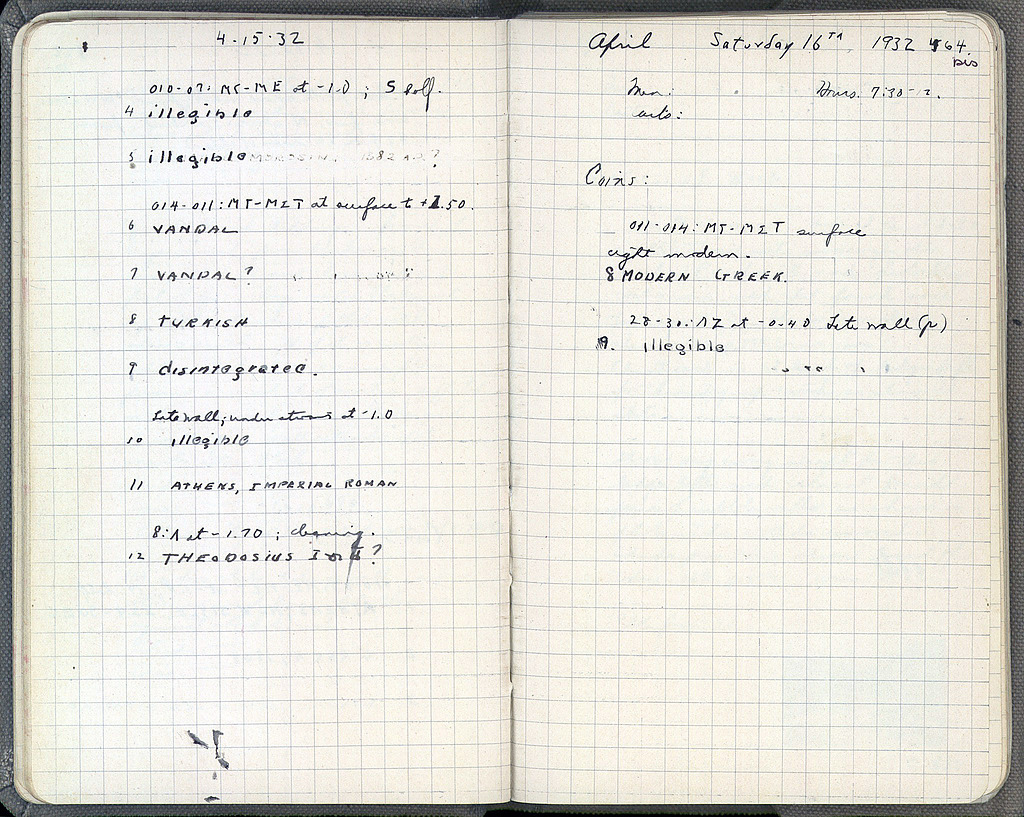 4-15-32
010-07: MC-ME at -1.0 ; S half.
4 illegible
5 illegible 1382 A.D.?
014-011: MT-MIT at surface to +1.50.
6 VANDAL
7 VANDAL?
8 TURKISH
9 disintegrated.
Late wall; under at -1.0
10 illegible
11 ATHENS, IMPERIAL ROMAN
8:Λ at -1.70 ; cleaning.
12 THEODOSIUS I ?
April Saturday 16TH 1932 564
bis
Men: Hours. 7:30-2.
Coins:
011-014: MT-MIT surface
modern.
8 MODERN GREEK.
28-30: ΛZ at -0.40 Late wall (p)
9. illegible